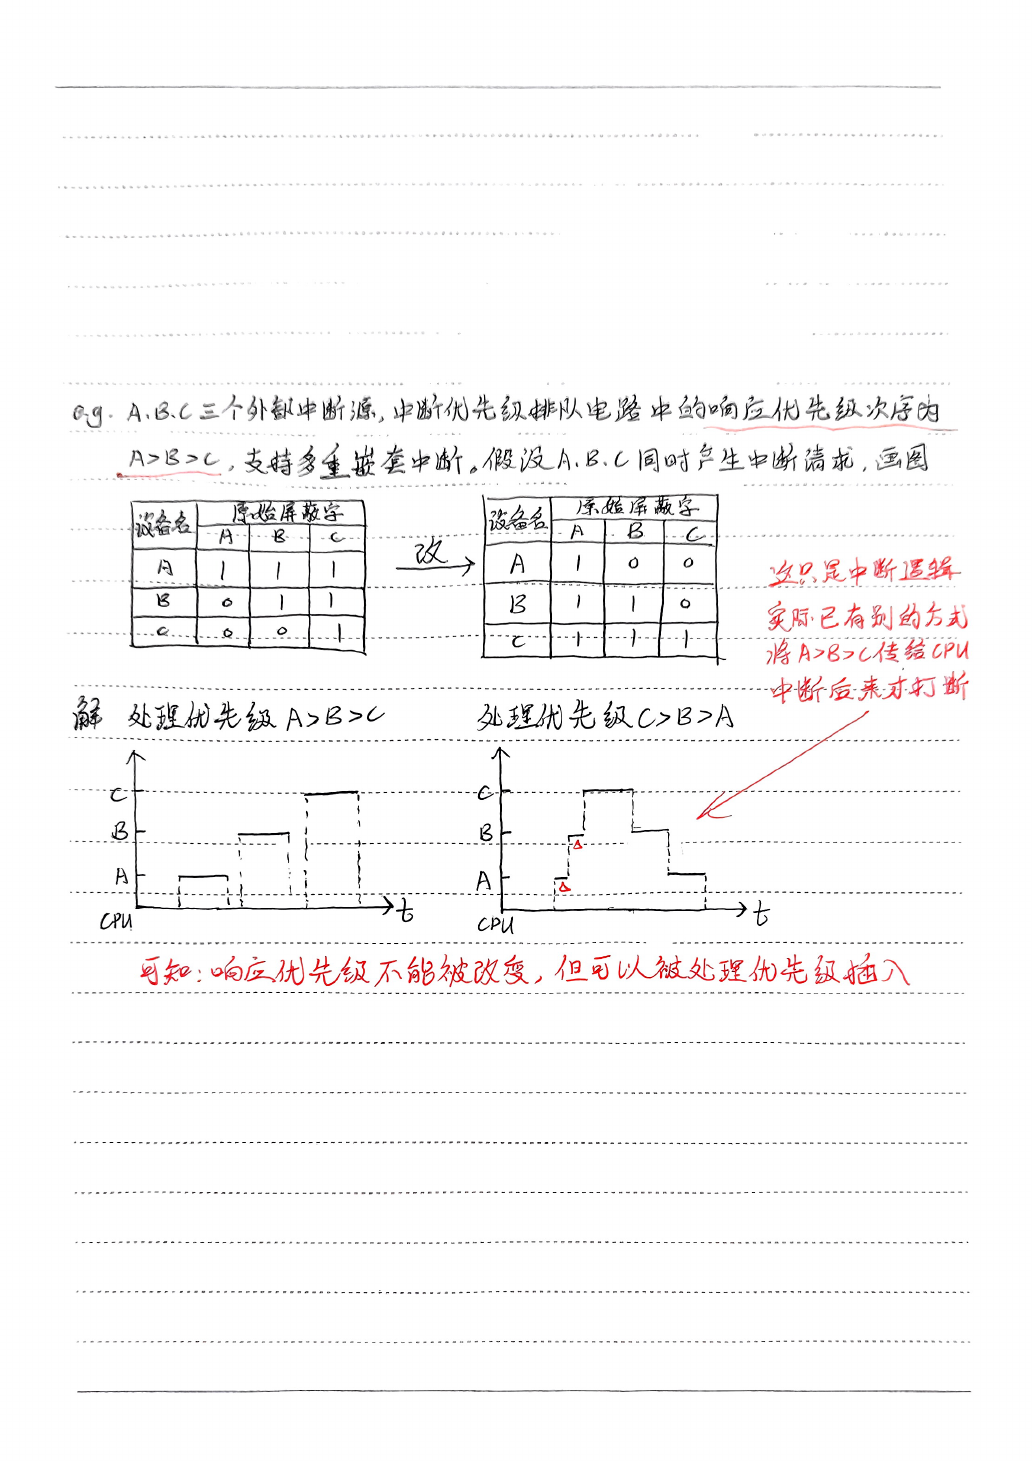 e.g. A.B.C三个外部中断源,中断优先级排队电路中的响应优先级次序为
A>B>C,支持多重嵌套中断。假设A.B.C同时产生中断请求,画图
设备名 原始屏蔽字
A B C
A 1 1 1
B 0 1 1
C 0 0 1
改
设备名 原始屏蔽字
A B C
A 1 0 0
B 1 1 0
C 1 1 1
这只是中断逻辑
实际已有别的方式
将A>B>C传给CPU
中断后来才打断
解 处理优先级A>B>C
C
B
A
CPU
t
处理优先级C>B>A
C
B
A
CPU
t
可知:响应优先级不能被改变,但可以被处理优先级插入